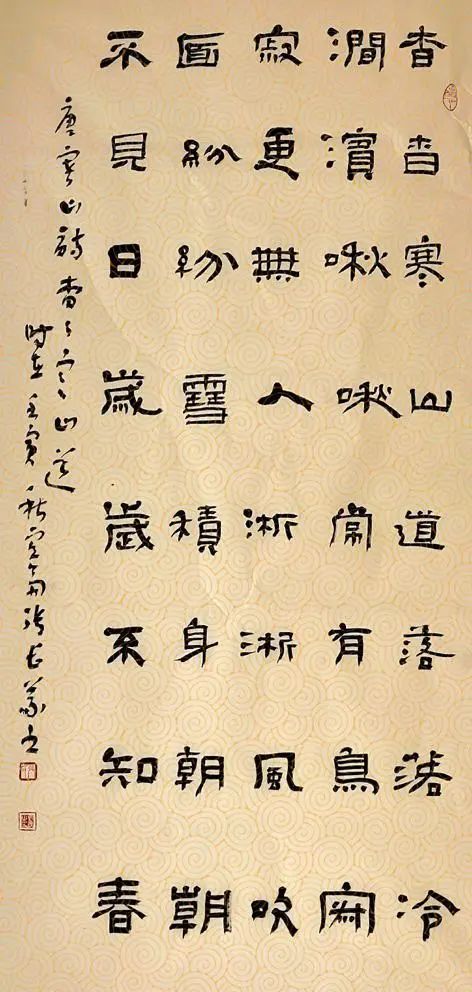 杳杳寒山道落落冷
澗濱啾啾常有鳥寂
寂更無人淅淅風吹
面紛紛雪積身朝朝
不見日歲歲不知春
唐寒山詩杳々寒山道
時在壬寅秋